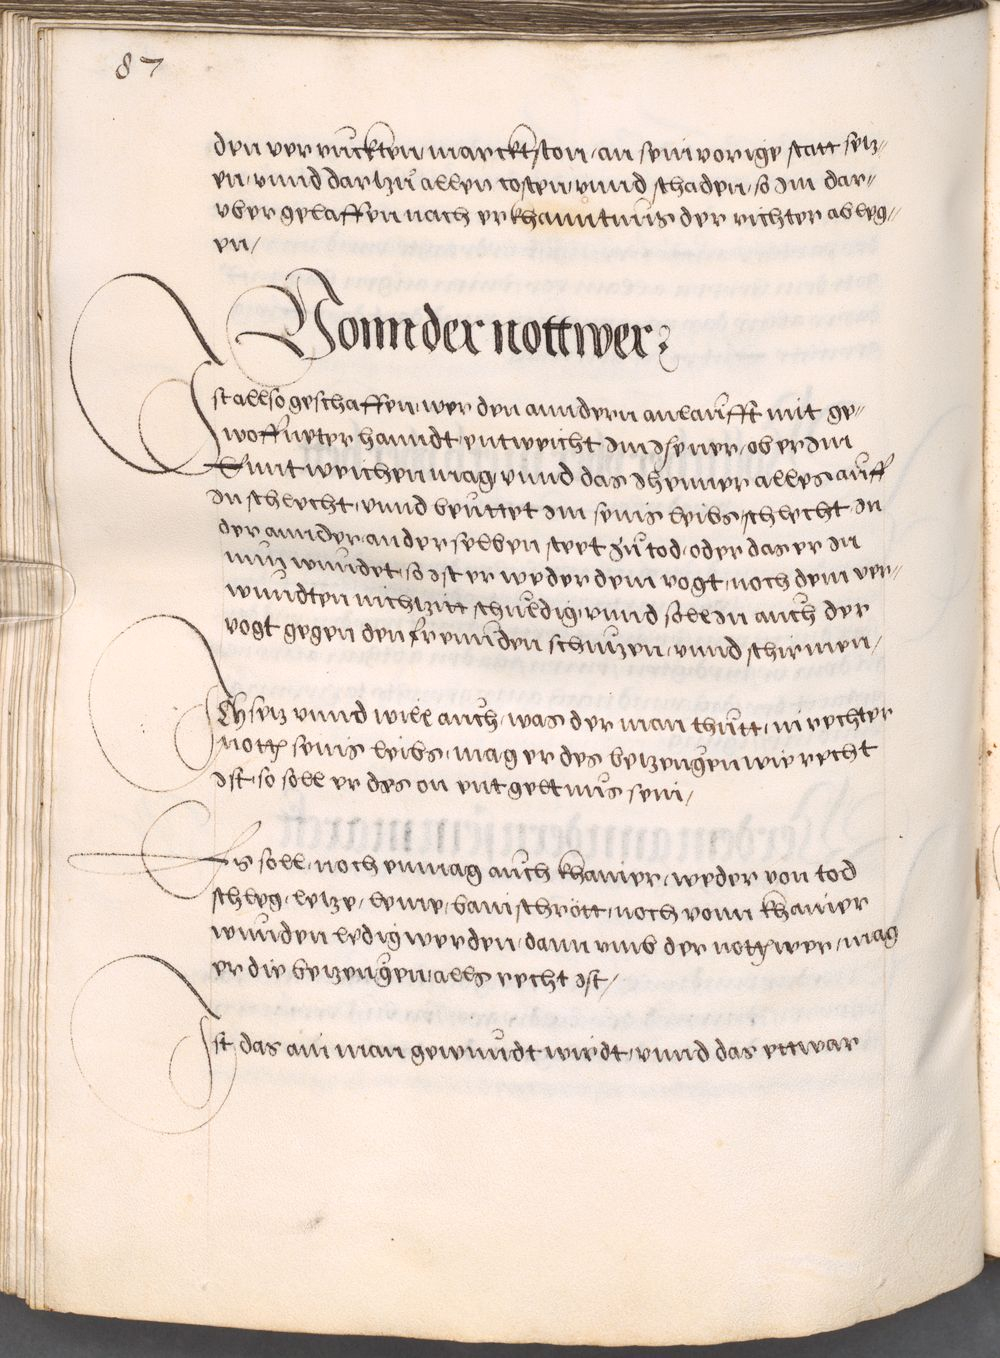 87
den verruckten marckston an sein vorige statt setz„
en, vnnd dartzů allen costen vnnd schaden, so im dar„
vber gelaffen nach erkhanntnus der richter ableg„
en,
Vonn der nottwer
Ist allso geschaffen, wer den anndern anlaůfft mit ge„
woffneter hanndt, entweicht im ihener, ob er im
Enntweichen mag, vnnd das ihenner alles aůff
in schlecht, vnnd beůttet im seins leibs, schlecht in
der annder an der selben stet zů tod, oder das er in
nun wundet, so ist er weder dem vogt, noch dem ver„
wundten nichtzitt schuldig, vnnd soll in aůch der
vogt gegen den freůnden schůtzen, vnnd schirmen,
Ich setz vnnd will aůch, was der man thůtt, in rechter
nott seins leibs, mag er des betzeůgen wie recht
ist, so soll er des on entgeltnus sein,
Es soll, noch enmag aůch khainer, weder von tod
schleg, letze, leme, bainschrött, noch vonn khainer
wunden ledig werden, dann vmb der nottwer, mag
er die betzeůgen, alls recht ist,
Ist das ain man gewundt wirdt, vnnd das ettwar